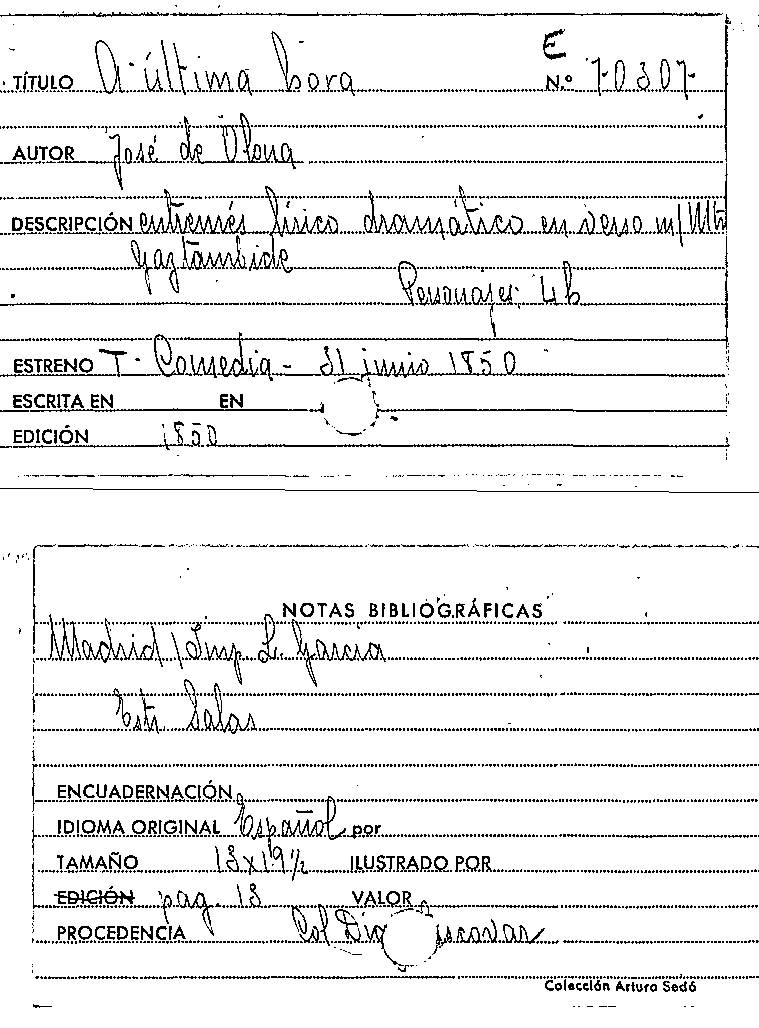 E
TÍTULO A última hora N.º 70307-
AUTOR José de Olona
DESCRIPCIÓN entremés lírico dramático en verso m/ Mtro
Gaztambide
Personajes: 4h
ESTRENO T. Comedia - 31 junio 1850
ESCRITA EN EN
EDICIÓN 1850
NOTAS BIBLIOGRÁFICAS
Madrid / Imp. L. García
Estr. Salas
ENCUADERNACIÓN
IDIOMA ORIGINAL Español por
TAMAÑO 13x19½ ILUSTRADO POR
EDICIÓN pag. 13 VALOR
PROCEDENCIA Col
Colección Arturo Sedó